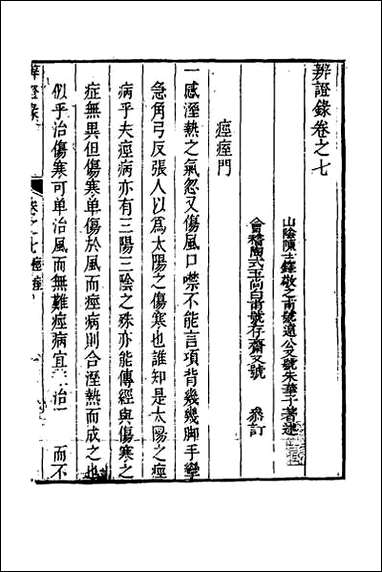 辨證錄卷之七
山陰陳士鐸敬之甫號遠公又號朱華子著述
會稽陶式玉尚白甫號存齋又號 叅訂
痙痓門
一感溼熱之氣忽又傷風口噤不能言項背幾幾脚手攣
急角弓反張人以為太陽之傷寒也誰知是太陽之痙
病乎夫痙病亦有三陽三陰之殊亦能傳經與傷寒之
症無異但傷寒单傷於風而痙病則合溼熱而成之也
似乎治傷寒可单治風而無難痙病宜 治 而不
辨證錄 卷之七 痙痓